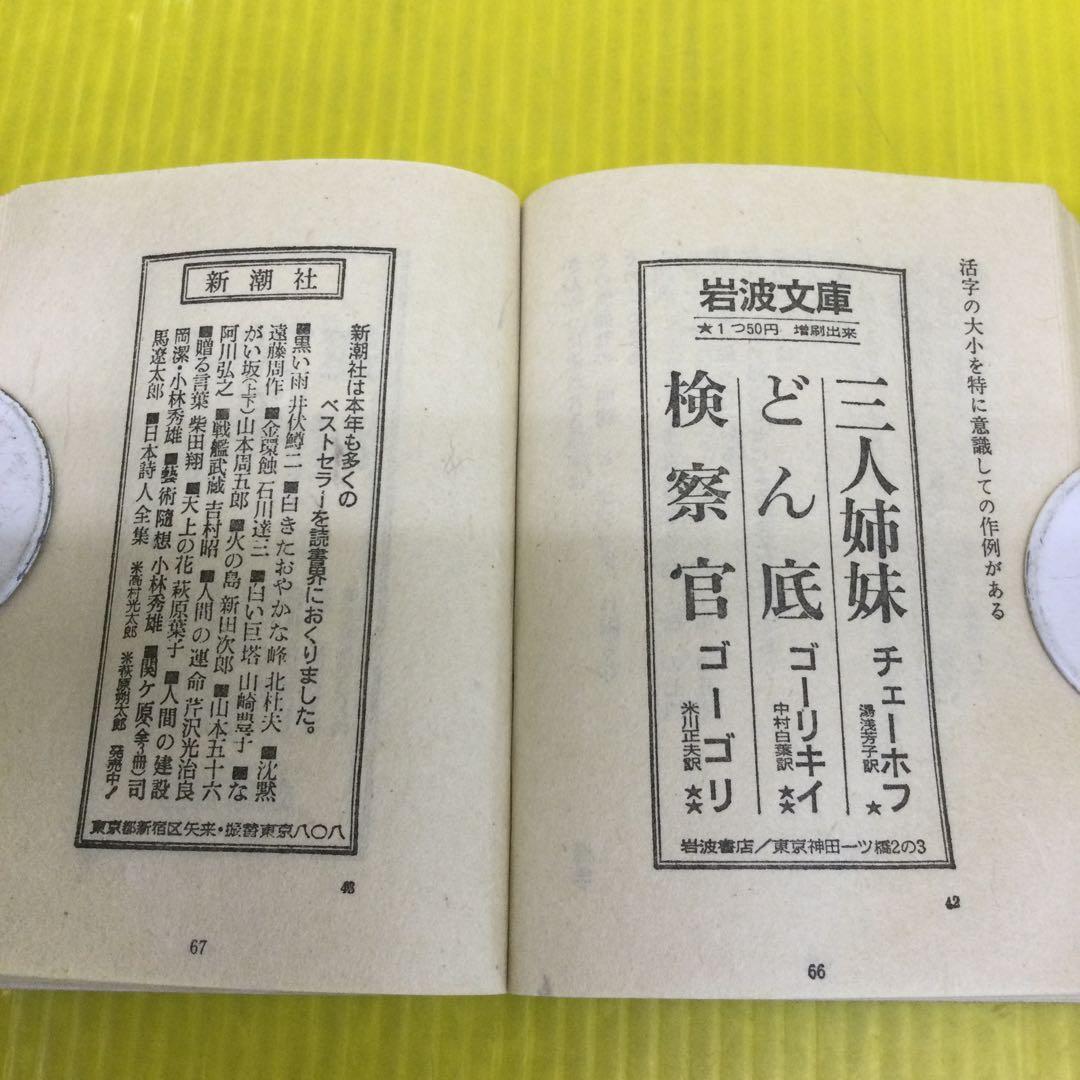 活字の大小を特に意識しての作例がある
岩波文庫
★1つ50円 増刷出来
三人姉妹 チェーホフ
湯浅芳子訳 ★
どん底 ゴーリキイ
中村白葉訳 ★★
検察官 ゴーゴリ
米川正夫訳 ★★
岩波書店/東京神田一ツ橋2の3
42
66
新潮社
新潮社は本年も多くの
ベストセラーを読書界におくりました。
■黒い雨 井伏鱒二 ■白きたおやかな峰 北杜夫 ■沈黙
遠藤周作 ■金環蝕 石川達三 ■白い巨塔 山崎豊子 ■な
がい坂(上下)山本周五郎 ■火の島 新田次郎 ■山本五十六
阿川弘之 ■戦艦武蔵 吉村昭 ■人間の運命 芹沢光治良
■贈る言葉 柴田翔 ■天上の花 萩原葉子 ■人間の建設
岡潔・小林秀雄 ■藝術随想 小林秀雄 ■関ケ原(全3冊)司
馬遼太郎 ■日本詩人全集 ※高村光太郎 ※萩原朔太郎 発売中!
東京都新宿区矢来・振替東京八〇八
43
67